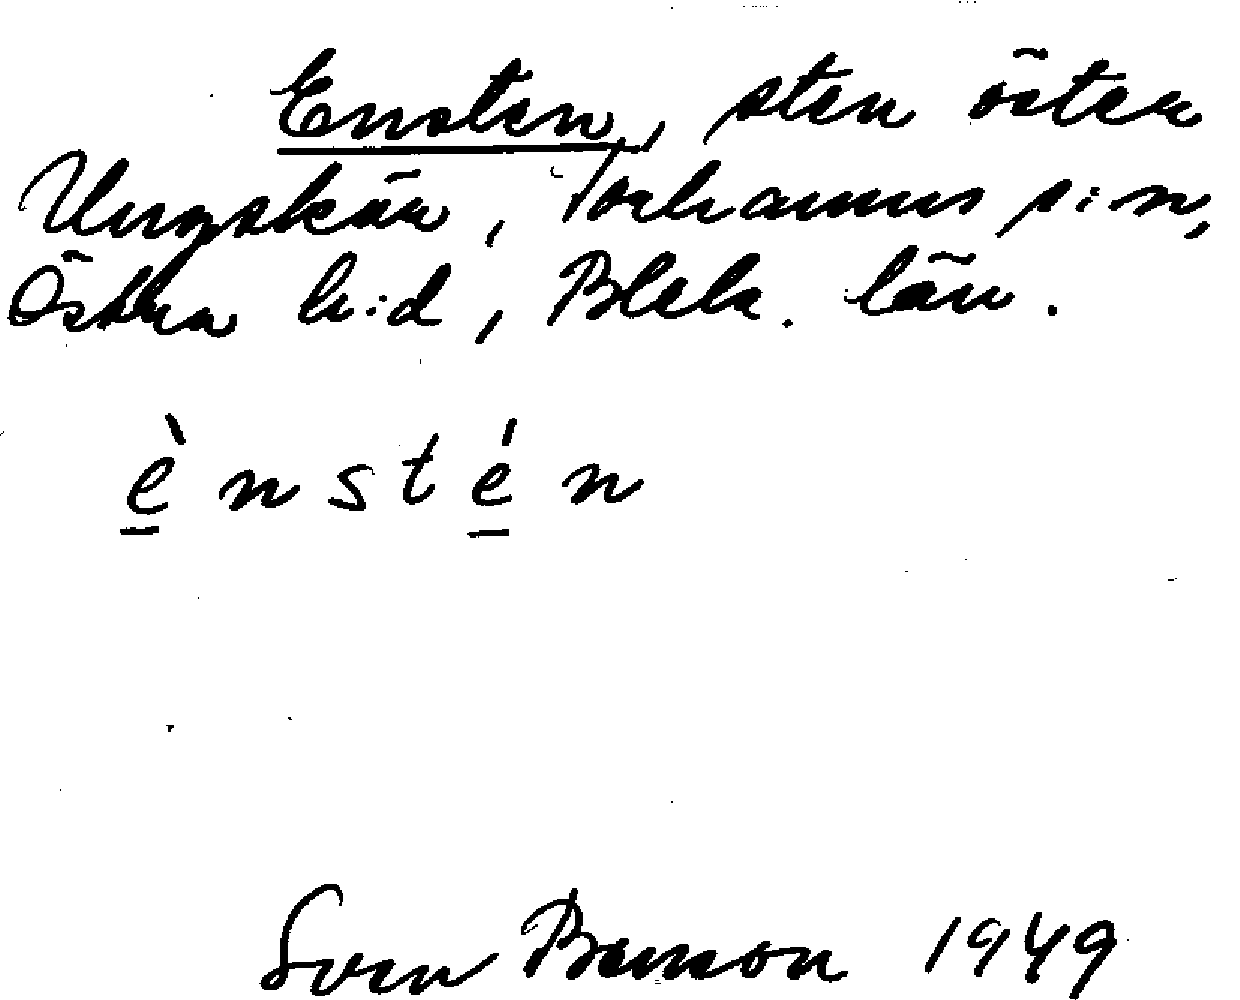 Ensten, sten öster
Ungskär, Torhamns s:n,
Östra h:d, Blek. län.
è n s t é n
Sven Benson 1949